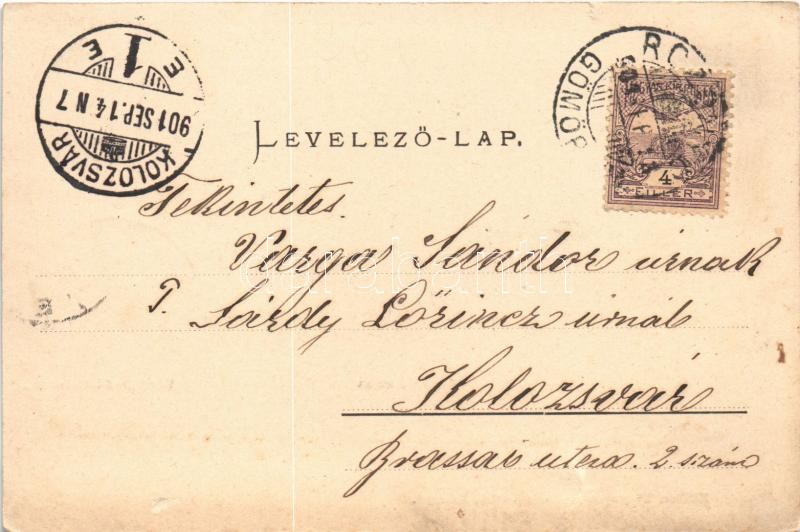 KOLOZSVÁR
901 SEP. 14 N 7
1
E E
GÖMÖR
4
FILLER
LEVELEZŐ-LAP.
Tekintetes.
Varga Sándor úrnak
T. Sárdy Lőrincz úrnál
Kolozsvár
Brassai utcza. 2 szám